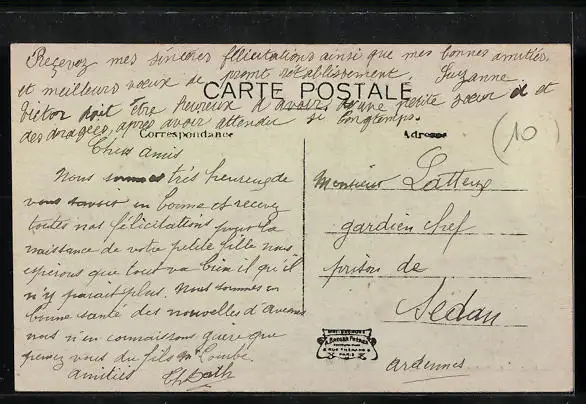 Recevez mes sincères félicitations ainsi que mes bonnes amitiés
et meilleurs voeux de promt rétablissement. Suzanne
CARTE POSTALE
Victor doit être heureux d'avoir une petite soeur et
des dragées, après avoir attendu si longtemps.
Correspondance
Adresse
10
Chers amis
Nous très heureux de
vous savoir en bonne et recevez
toutes nos félicitations pour la
naissance de votre petite fille nous
esperons que tout va bien il qu'il
n'y parait plus. Nous sommes en
bonne santé des nouvelles d'avesnes
nous n'en connaissons guère que
pensez vous du fils
amitiés
Monsieur
gardien chef
prison de
Sedan
Ardennes
PARIS